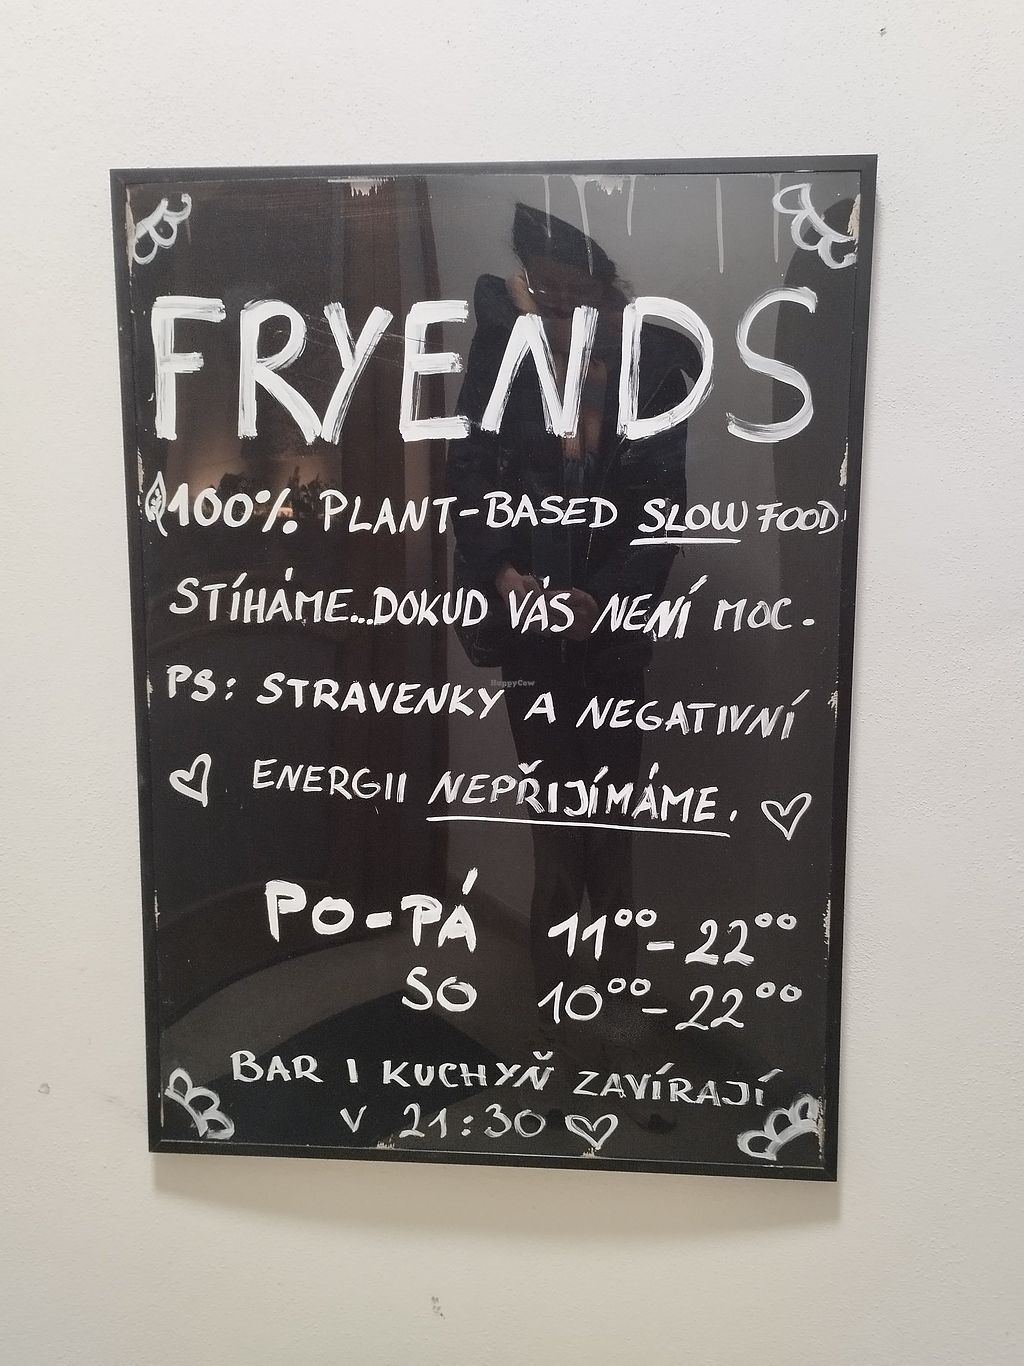 FRYENDS
100% PLANT-BASED SLOW FOOD
STÍHÁME...DOKUD VÁS NENÍ MOC.
PS: STRAVENKY A NEGATIVNÍ
ENERGII NEPŘIJÍMÁME.
HappyCow
PO-PÁ 11⁰⁰-22⁰⁰
SO 10⁰⁰-22⁰⁰
BAR I KUCHYŇ ZAVÍRAJÍ
V 21:30